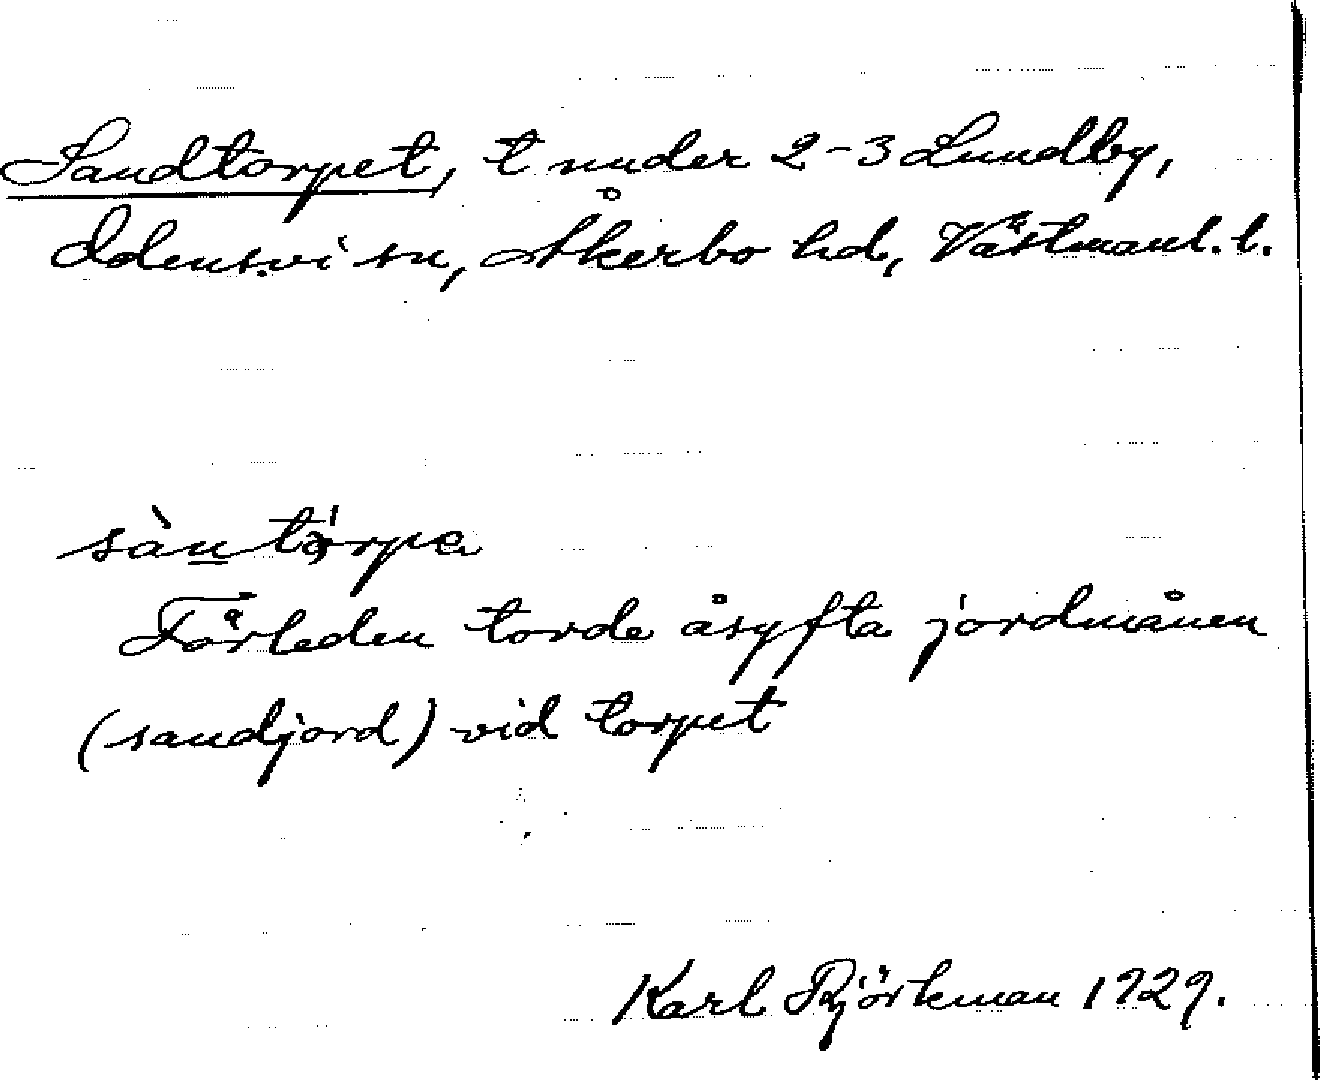 Sandtorpet, t under 2-3 Lundby,
Odensvi sn, Åkerbo hd, Västmanl. l.
sàntå̀rpa
Förleden torde åsyfta jordmånen
(sandjord) vid torpet
Karl Björkman 1929.